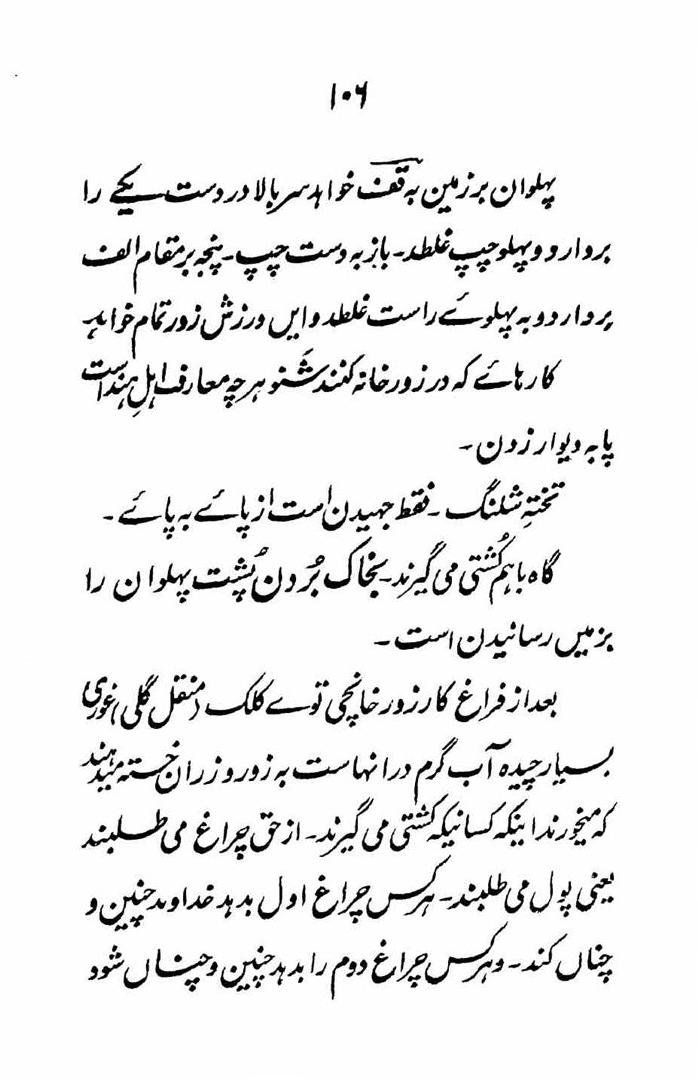 ۱۰۶
پہلوان بر زمین بہ قفف خواہد سر بالا در دست یکے را
بردارد و پہلو چپ غلطد۔ باز بہ دست چپ۔ پنجہ بر مقام الف
بردارد و بہ پہلوے راست غلطد و ایں ورزش زور تمام خواہد
کارہاے کہ در زورخانہ کنند شَنو ہرچہ معارف اہلِ ہند است
پا بہ دیوار زدن۔
تختہِ شلنگ۔ فقط جہیدن است از پاے بہ پاے۔
گاہ باہم کُشتی می گیرند۔ بخاک بُردن پُشت پہلوان را
بزمیں رسانیدن است۔
بعد از فراغ کار زورخانچی توے کلک (منقل گلی) غوری
بسیار چیدہ آب گرم در انہاست بہ زور وزران خستہ میدہند
کہ میخورند اینکہ کسانیکہ کشتی می گیرند۔ از حق چراغ می طلبند
یعنی پول می طلبند۔ ہر کس چراغ اول بدہد خداوند چنین و
چناں کند۔ و ہر کس چراغ دوم را بدہد چنیں و چناں شود